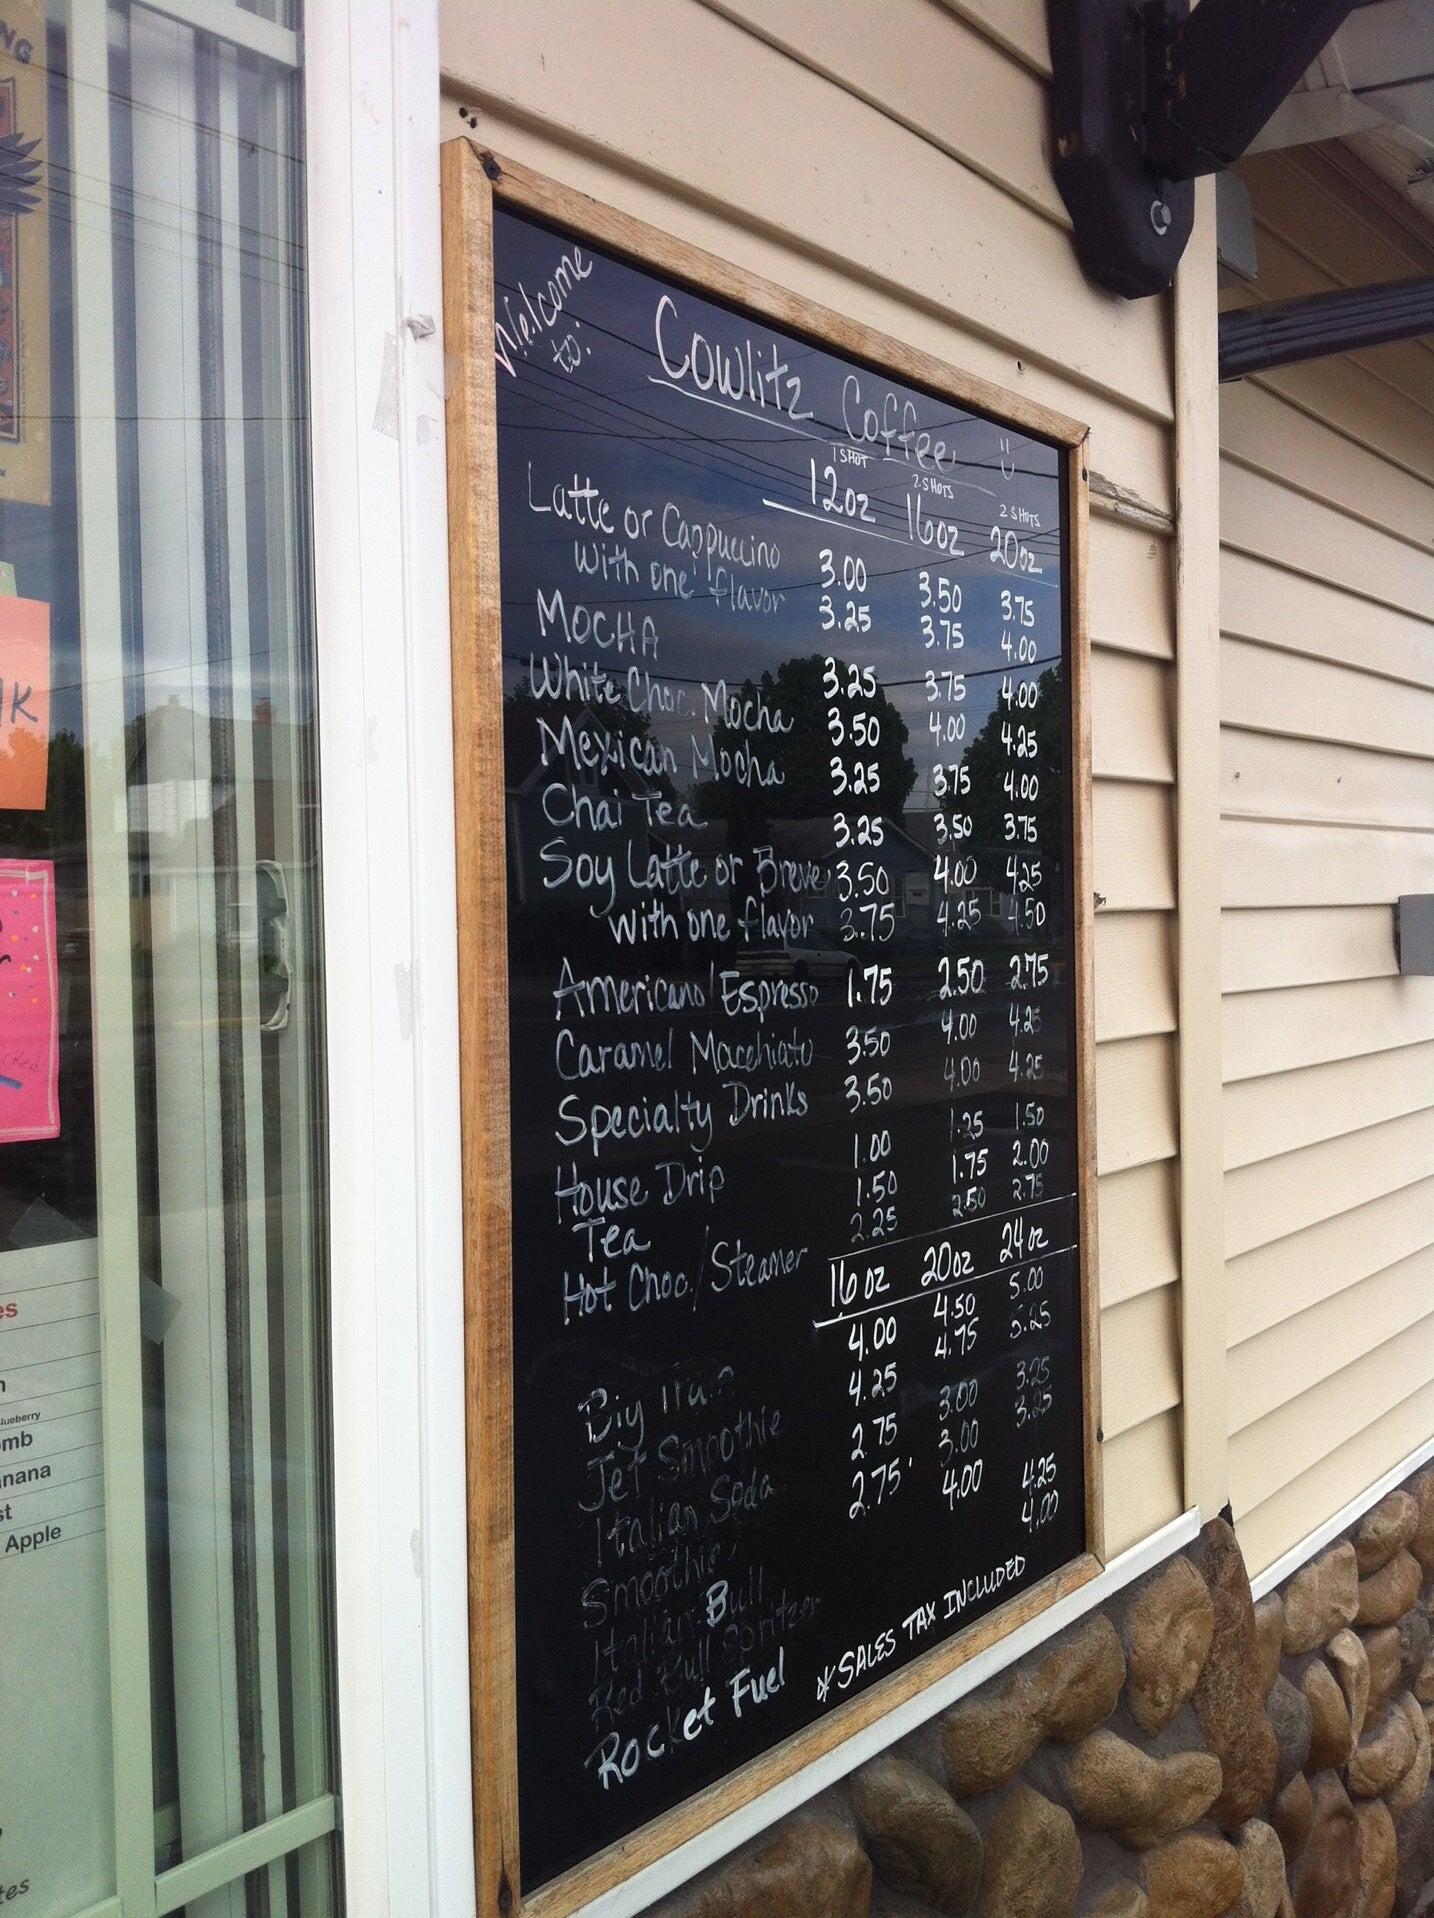 Welcome
to:
Cowlitz Coffee :)
1 SHOT 2 SHOTS 2 SHOTS
12oz 16oz 20oz
Latte or Cappuccino 3.00 3.50 3.75
with one flavor 3.25 3.75 4.00
MOCHA 3.25 3.75 4.00
White Choc. Mocha 3.50 4.00 4.25
Mexican Mocha 3.25 3.75 4.00
Chai Tea 3.25 3.50 3.75
Soy Latte or Breve 3.50 4.00 4.25
with one flavor 3.75 4.25 4.50
Americano/Espresso 1.75 2.50 2.75
Caramel Macchiato 3.50 4.00 4.25
Specialty Drinks 3.50 4.00 4.25
House Drip 1.00 1.25 1.50
Tea 1.50 1.75 2.00
Hot Choc./Steamer 2.25 2.50 2.75
16oz 20oz 24oz
Big Train 4.00 4.50 5.00
Jet Smoothie 4.25 4.75 5.25
Italian Soda 2.75 3.00 3.25
Smoothie 2.75 3.00 3.25
Italian Bull 4.00 4.25
Red Bull Spritzer 4.00
Rocket Fuel
*SALES TAX INCLUDED
NG
1K
es
lueberry
omb
nana
st
Apple
tes